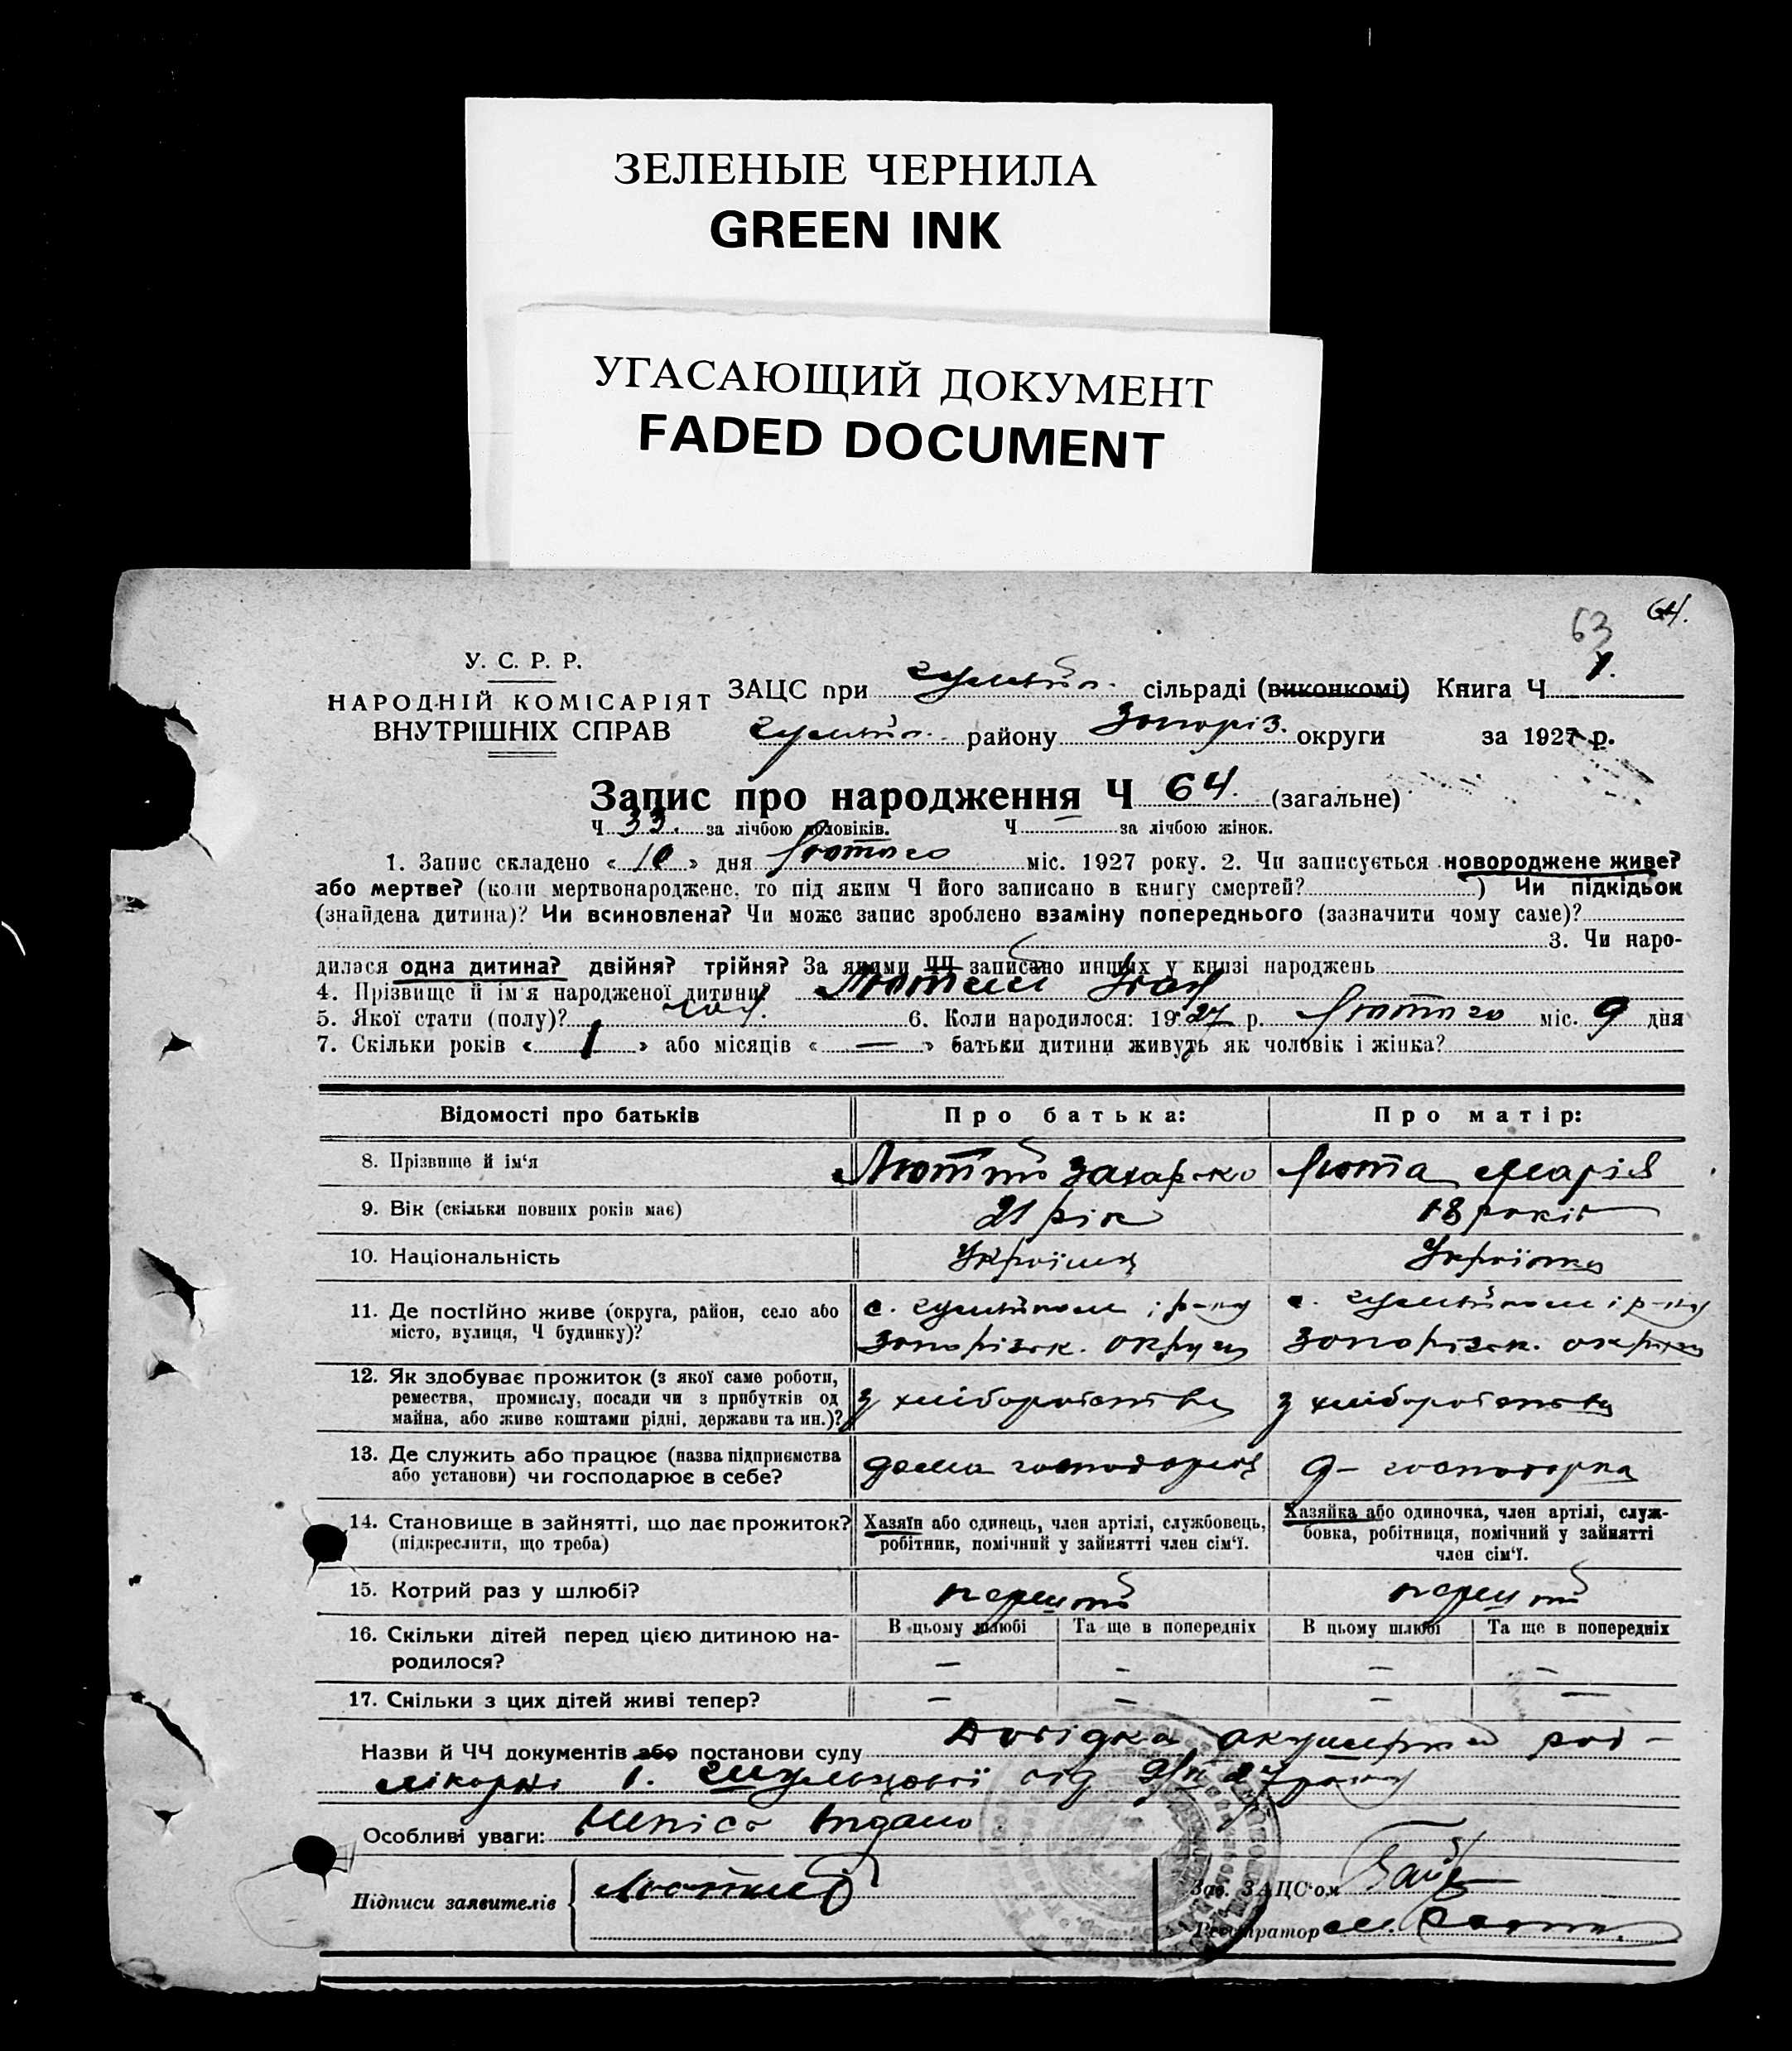 ЗЕЛЕНЫЕ ЧЕРНИЛА
GREEN INK
УГАСАЮЩИЙ ДОКУМЕНТ
FADED DOCUMENT
63 64.
У. С. Р. Р.
НАРОДНІЙ КОМІСАРІЯТ
ВНУТРІШНІХ СПРАВ
ЗАЦС при сільраді (виконкомі) Книга Ч 1.
району Запоріз. округи за 1927 р.
Запис про народження Ч 64. (загальне)
Ч 33. за лічбою чоловіків. Ч за лічбою жінок.
1. Запис складено «10» дня Лютого міс. 1927 року. 2. Чи записується новороджене живе?
або мертве? (коли мертвонароджене, то під яким Ч його записано в книгу смертей? ) Чи підкідьок
(знайдена дитина)? Чи всиновлена? Чи може запис зроблено взаміну попереднього (зазначити чому саме)?
3. Чи наро-
дилася одна дитина? двійня? трійня? За якими ЧЧ записано инших у книзі народжень
4. Прізвище й ім'я народженої дитини? Лютий
5. Якої стати (полу)? чол. 6. Коли народилося: 1927 р. Лютого міс. 9 дня
7. Скільки років «1» або місяців «—» батьки дитини живуть як чоловік і жінка?
Відомості про батьків Про батька: Про матір:
8. Прізвище й ім'я Лютий Захарко Люта Марія
9. Вік (скільки повних років має) 21 рік 18 років
10. Національність Українец Українка
11. Де постійно живе (округа, район, село або
місто, вулиця, Ч будинку)?
с. і р-ну с. і р-ну
Запорізьк. округи Запорізьк. округи
12. Як здобуває прожиток (з якої саме роботи,
ремества, промислу, посади чи з прибутків од
майна, або живе коштами рідні, держави та ин.)?
з хліборобства з хліборобства
13. Де служить або працює (назва підприємства
або установи) чи господарює в себе?
дома господарює д- господарка
14. Становище в зайнятті, що дає прожиток?
(підкреслити, що треба)
Хазяїн або одинець, член артілі, службовець,
робітник, помічний у зайнятті член сім'ї.
Хазяйка або одиночка, член артілі, служ-
бовка, робітниця, помічний у зайнятті
член сім'ї.
15. Котрий раз у шлюбі? перший перший
16. Скільки дітей перед цією дитиною на-
родилося?
В цьому шлюбі Та ще в попередніх В цьому шлюбі Та ще в попередніх
— — — —
17. Скільки з цих дітей живі тепер? — — — —
Назви й ЧЧ документів або постанови суду Довідка акушерки рай-
лікарні від 9/II 27 року
Особливі уваги: Випись видано
Підписи заявителів Лютий
Зав. ЗАЦС'ом
Реєстратор